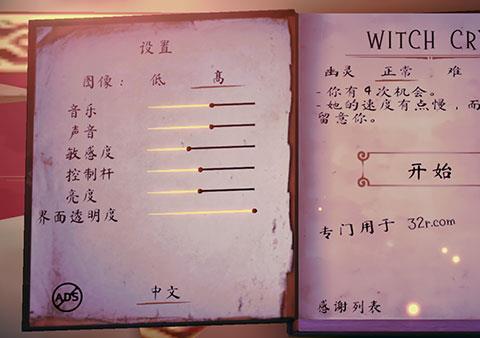 设置
图像： 低 高
音乐
声音
敏感度
控制杆
亮度
界面透明度
ADS
中文
WITCH CR
幽灵 正常 难
- 你有4次机会。
- 她的速度有点慢，而
留意你。
开始
专门用于 32r.com
感谢列表